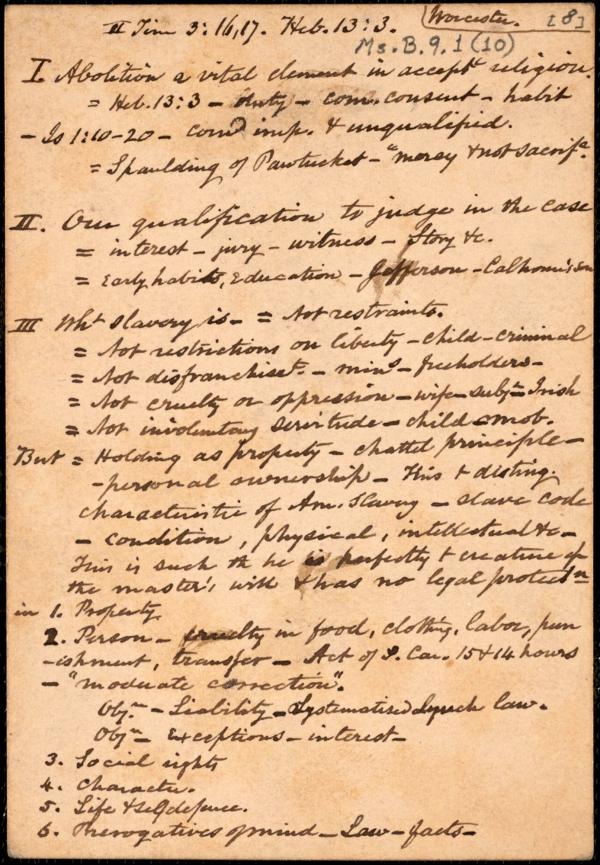 II Tim 3:16,17. Heb. 13:3. Worcester. [8]
Ms. B. 9. 1 (10)
I. Abolition a vital element in accept religion.
= Heb. 13:3 - duty - com. consent - habit
- Is 1:10-20 - comd imp. & unqualified.
= Spaulding of Pawtucket - "mercy & not sacrifs.
II. Our qualification to judge in the case
= interest - jury - witness - Story &c.
= Early habits, Education - Jefferson - Calhoun's son
III Wht slavery is - = Not restraints.
= Not restrictions on liberty - child - criminal
= Not disfranchiset. - mins - freeholders -
= Not cruelty or oppression - wife - subjn Irish
= Not involuntary servitude - child - mob.
But = Holding as property - chattel principle -
- personal ownership - This t disting.
characteristic of Am. Slavery - slave code
- condition, physical, intellectual &c -
This is such th he is perfectly t creature of
the master's will & has no legal protectn
in 1. Property
2. Person - cruelty in food, clothing, labor, pun
-ishment, transfer - Act of S. Car. 15 & 14 hours
- "moderate correction".
Objn - Liability - Systematised Lynch law.
Objn - Exceptions - interest -
3. Social rights
4. Character.
5. Life & selfdefence.
6. Prerogatives of mind - Law - facts -